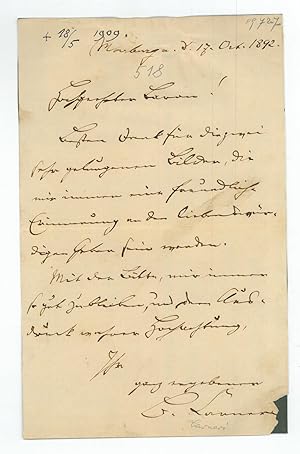 + 18/5 1909.
19.727
Marburg a. D. 17. Oct. 1892.
518
Hochgeehrter Baron!
Besten Dank für die zwei
sehr gelungenen Bilder, die
mir immer eine freundliche
Erinnerung an den liebenswür-
digen Geber sein werden.
Mit der Bitte, mir immer
so gut zu bleiben, und dem Aus-
druck wahrer Hochachtung,
Ihr
ganz ergebener
B. Carneri
Carneri